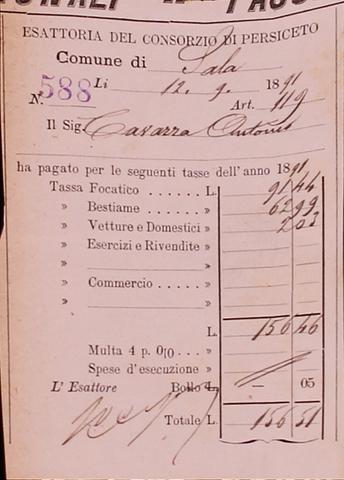 ESATTORIA DEL CONSORZIO DI PERSICETO
Comune di Sala
N. 588 Li 12. 9. 1891
Art. 119
Il Sig. Cavarra Antonio
ha pagato per le seguenti tasse dell'anno 1891
Tassa Focatico ...... L. 91 44
» Bestiame ....... » 62 99
» Vetture e Domestici » 2 03
» Esercizi e Rivendite »
» »
» Commercio ..... »
» »
L. 156 46
Multa 4 p. 0|0 ... »
Spese d'esecuzione »
L' Esattore Bollo L. — 05
Totale L. 156 51